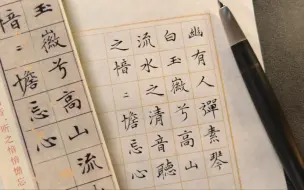 幽有人彈素琴
白玉徽兮高山
流水之清音聽
之愔〻憺忘心
玉徽兮高山流
愔〻憺忘心